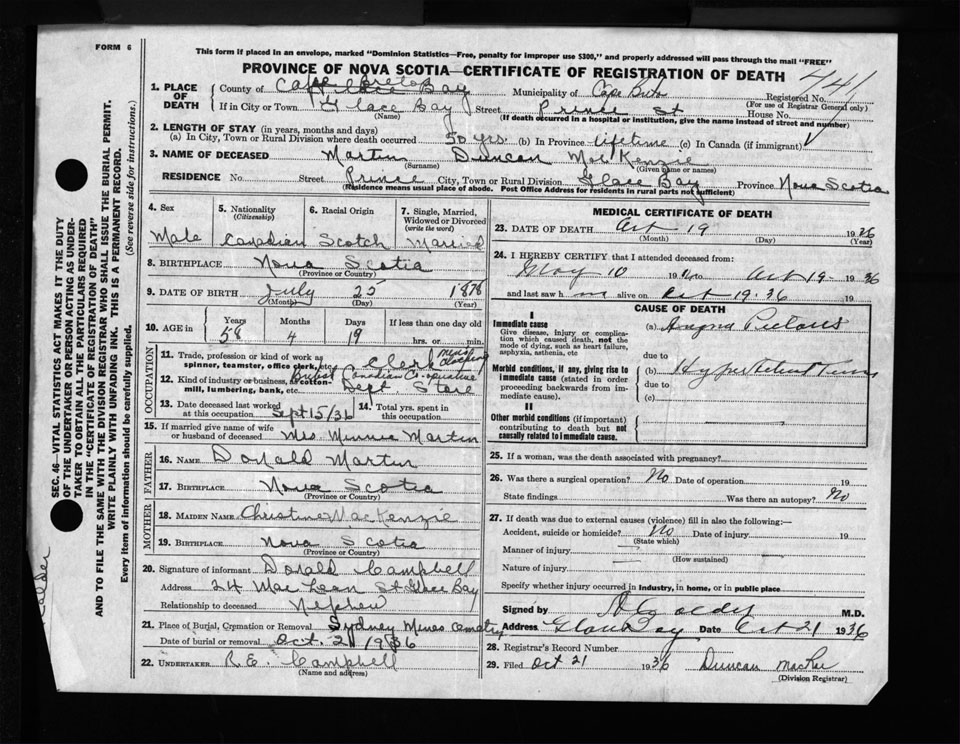 FORM 6
This form if placed in an envelope, marked "Dominion Statistics—Free, penalty for improper use $300," and properly addressed will pass through the mail "FREE"
PROVINCE OF NOVA SCOTIA—CERTIFICATE OF REGISTRATION OF DEATH
Registered No. 
(For use of Registrar General only)
1. PLACE OF DEATH County of Cape Breton Municipality of Cape Breton
If in City or Town Glace Bay Street Prince St House No.
(Name) (If death occurred in a hospital or institution, give the name instead of street and number)
2. LENGTH OF STAY (in years, months and days)
(a) In City, Town or Rural Division where death occurred 50 yrs. (b) In Province lifetime (c) In Canada (if immigrant)
3. NAME OF DECEASED Martin Duncan MacKenzie
(Surname) (Given name or names)
RESIDENCE No. Street Prince City, Town or Rural Division Glace Bay Province Nova Scotia
(Residence means usual place of abode. Post Office Address for residents in rural parts not sufficient)
4. Sex Male
5. Nationality (Citizenship) Canadian
6. Racial Origin Scotch
7. Single, Married, Widowed or Divorced (write the word) Married
8. BIRTHPLACE Nova Scotia
(Province or Country)
9. DATE OF BIRTH July 25 1878
(Month) (Day) (Year)
10. AGE in Years Months Days If less than one day old
58 4 19 hrs. or min.
OCCUPATION
11. Trade, profession or kind of work as spinner, teamster, office clerk, etc. Clerk mens clothing
12. Kind of industry or business, as cotton-mill, lumbering, bank, etc. British Canadian Co-operative Dept. Store
13. Date deceased last worked at this occupation Sept 15/36
14. Total yrs. spent in this occupation
15. If married give name of wife or husband of deceased Mrs Minnie Martin
FATHER
16. NAME Donald Martin
17. BIRTHPLACE Nova Scotia
(Province or Country)
MOTHER
18. MAIDEN NAME Christine MacKenzie
19. BIRTHPLACE Nova Scotia
(Province or Country)
20. Signature of informant Donald Campbell
Address 24 MacLean St Glace Bay
Relationship to deceased Nephew
21. Place of Burial, Cremation or Removal Sydney Mines Cemetry
Date of burial or removal Oct. 21 1936
22. UNDERTAKER R.E. Campbell
(Name and address)
MEDICAL CERTIFICATE OF DEATH
23. DATE OF DEATH Oct 19 1936
(Month) (Day) (Year)
24. I HEREBY CERTIFY that I attended deceased from:
May 10 19 to Oct 19 1936
and last saw h m alive on Oct 19.36 19
CAUSE OF DEATH
I
Immediate cause (a) Angina Pectoris
Give disease, injury or complication which caused death, not the mode of dying, such as heart failure, asphyxia, asthenia, etc
due to
Morbid conditions, if any, giving rise to immediate cause (stated in order proceeding backwards from immediate cause). (b)
due to
(c)
II
Other morbid conditions (if important) contributing to death but not causally related to immediate cause.
25. If a woman, was the death associated with pregnancy?
26. Was there a surgical operation? No Date of operation 19
State findings Was there an autopsy? No
27. If death was due to external causes (violence) fill in also the following:—
Accident, suicide or homicide? No Date of injury 19
(State which)
Manner of injury
(How sustained)
Nature of injury
Specify whether injury occurred in industry, in home, or in public place
Signed by M.D.
Address Glace Bay Date Oct 21 1936
28. Registrar's Record Number
29. Filed Oct 21 1936 Duncan MacRae
(Division Registrar)
SEC. 46—VITAL STATISTICS ACT MAKES IT THE DUTY
OF THE UNDERTAKER OR PERSON ACTING AS UNDER-
TAKER TO OBTAIN ALL THE PARTICULARS REQUIRED
IN THE "CERTIFICATE OF REGISTRATION OF DEATH"
AND TO FILE THE SAME WITH THE DIVISION REGISTRAR WHO SHALL ISSUE THE BURIAL PERMIT.
WRITE PLAINLY WITH UNFADING INK. THIS IS A PERMANENT RECORD.
Every item of information should be carefully supplied. (See reverse side for instructions.)